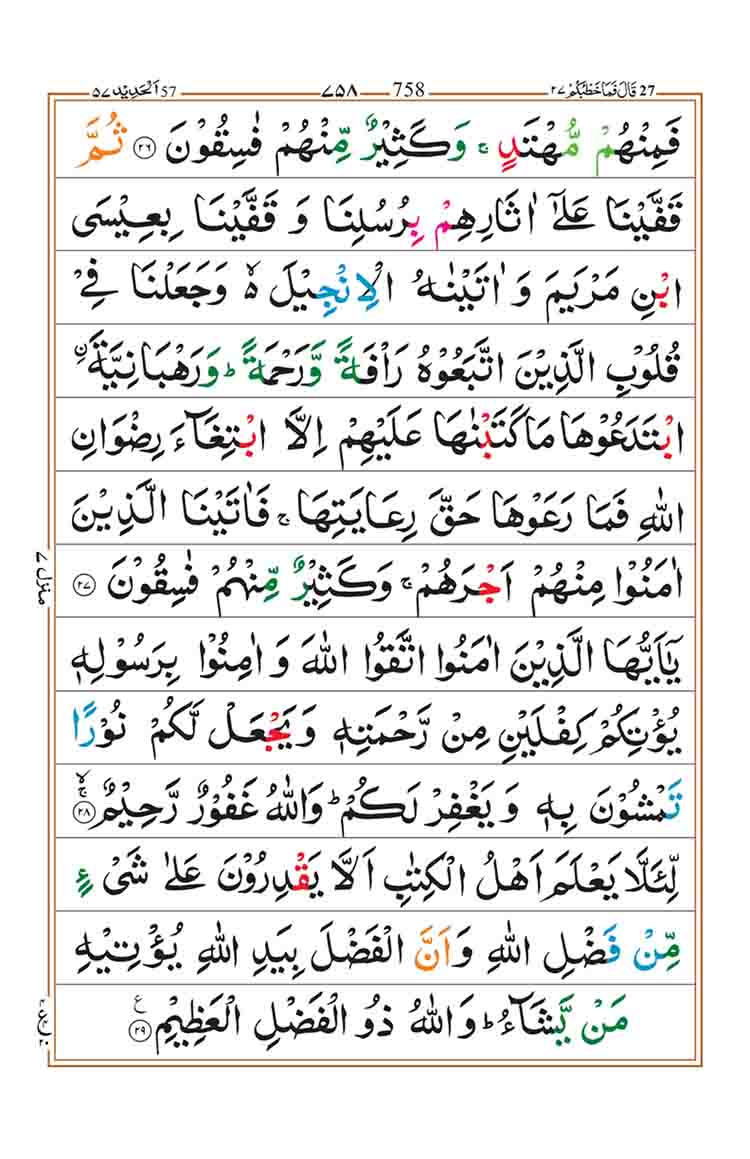 57 اَلْحَدِيْد ٥٧ ٧٥٨ 758 27 قَالَ فَمَا خَطْبُكُمْ ٢٧
فَمِنْهُمْ مُّهْتَدٍ ۚ وَكَثِيْرٌ مِّنْهُمْ فٰسِقُوْنَ ﴿٢٦﴾ ثُمَّ
قَفَّيْنَا عَلٰٓى اٰثَارِهِمْ بِرُسُلِنَا وَ قَفَّيْنَا بِعِيْسَى
ابْنِ مَرْيَمَ وَ اٰتَيْنٰهُ الْاِنْجِيْلَ ۙ۬ وَجَعَلْنَا فِيْ
قُلُوْبِ الَّذِيْنَ اتَّبَعُوْهُ رَاْفَةً وَّرَحْمَةً ؕ وَرَهْبَانِيَّةَۨ
ابْتَدَعُوْهَا مَا كَتَبْنٰهَا عَلَيْهِمْ اِلَّا ابْتِغَآءَ رِضْوَانِ
اللّٰهِ فَمَا رَعَوْهَا حَقَّ رِعَايَتِهَا ۚ فَاٰتَيْنَا الَّذِيْنَ
اٰمَنُوْا مِنْهُمْ اَجْرَهُمْ ۚ وَكَثِيْرٌ مِّنْهُمْ فٰسِقُوْنَ ﴿٢٧﴾
يٰٓاَيُّهَا الَّذِيْنَ اٰمَنُوا اتَّقُوا اللّٰهَ وَ اٰمِنُوْا بِرَسُوْلِهٖ
يُؤْتِكُمْ كِفْلَيْنِ مِنْ رَّحْمَتِهٖ وَيَجْعَلْ لَّكُمْ نُوْرًا
تَمْشُوْنَ بِهٖ وَ يَغْفِرْ لَكُمْ ؕ وَاللّٰهُ غَفُوْرٌ رَّحِيْمٌ ﴿٢٨﴾ ۙۚ
لِّئَلَّا يَعْلَمَ اَهْلُ الْكِتٰبِ اَلَّا يَقْدِرُوْنَ عَلٰى شَيْءٍ
مِّنْ فَضْلِ اللّٰهِ وَاَنَّ الْفَضْلَ بِيَدِ اللّٰهِ يُؤْتِيْهِ
مَنْ يَّشَآءُ ؕ وَاللّٰهُ ذُو الْفَضْلِ الْعَظِيْمِ ﴿٢٩﴾ ع
منزل ٧